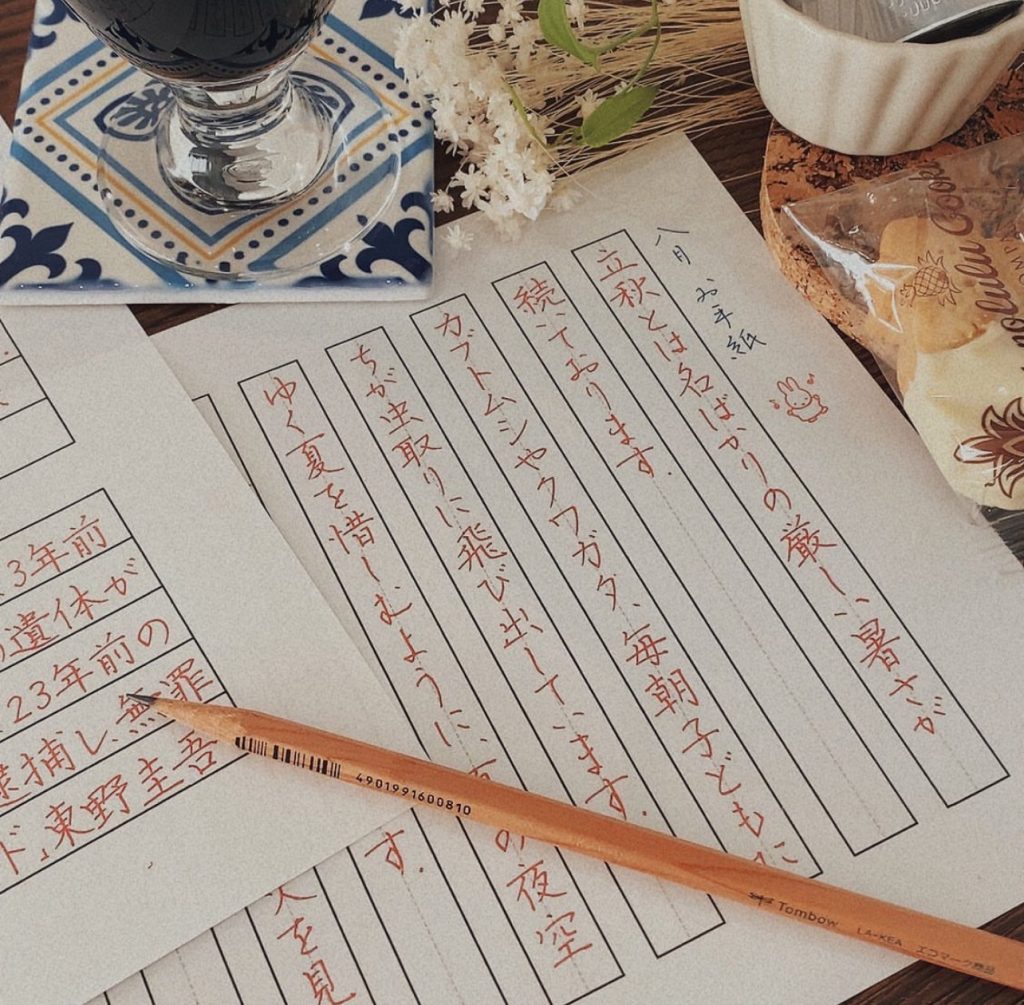 八月 お手紙
立秋とは名ばかりの厳しい暑さが
続いております.
カブトムシやクワガタ、毎朝子どもた
ちが虫取りに飛び出しています.
ゆく夏を惜しむように、
の夜空
す.
人を見
3年前
遺体が
23年前の
逮捕し、無罪
ド」東野圭吾
4901991600810
Tombow LA-KEA エコマーク商品